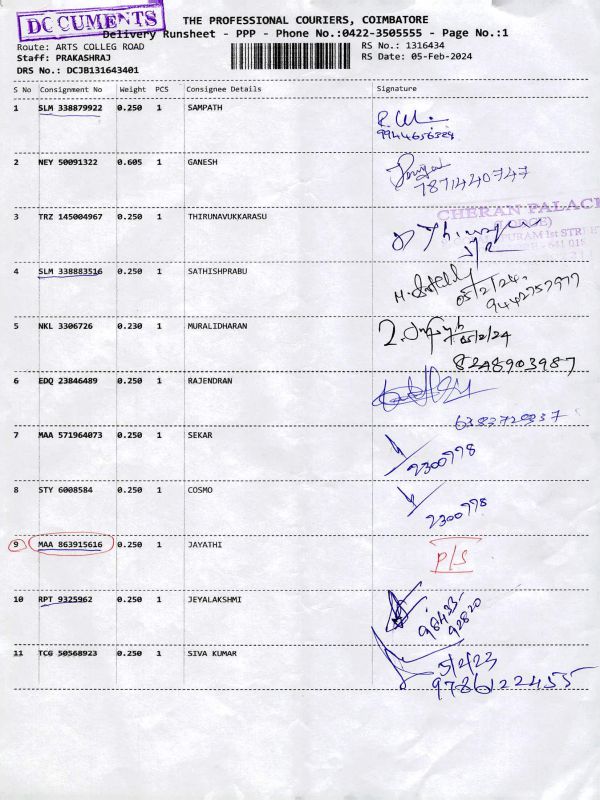 DOCUMENTS
THE PROFESSIONAL COURIERS, COIMBATORE
Delivery Runsheet - PPP - Phone No.:0422-3505555 - Page No.:1
Route: ARTS COLLEG ROAD
RS No.: 1316434
Staff: PRAKASHRAJ
RS Date: 05-Feb-2024
DRS No.: DCJB131643401
S No Consignment No Weight PCS Consignee Details Signature
1 SLM 338879922 0.250 1 SAMPATH
9944656329
2 NEY 50091322 0.605 1 GANESH
7871440747
3 TRZ 145004967 0.250 1 THIRUNAVUKKARASU
CHERAN PALACE
1st STREET
641 018
4 SLM 338883516 0.250 1 SATHISHPRABU
05/2/24
9442757977
5 NKL 3306726 0.230 1 MURALIDHARAN
05/2/24
8248903987
6 EDQ 23846489 0.250 1 RAJENDRAN
7 MAA 571964073 0.250 1 SEKAR
2300778
8 STY 6008584 0.250 1 COSMO
2300778
9 MAA 863915616 0.250 1 JAYATHI
P/S
10 RPT 9325962 0.250 1 JEYALAKSHMI
98433-
92820
11 TCG 50568923 0.250 1 SIVA KUMAR
5/2/23
9786122455